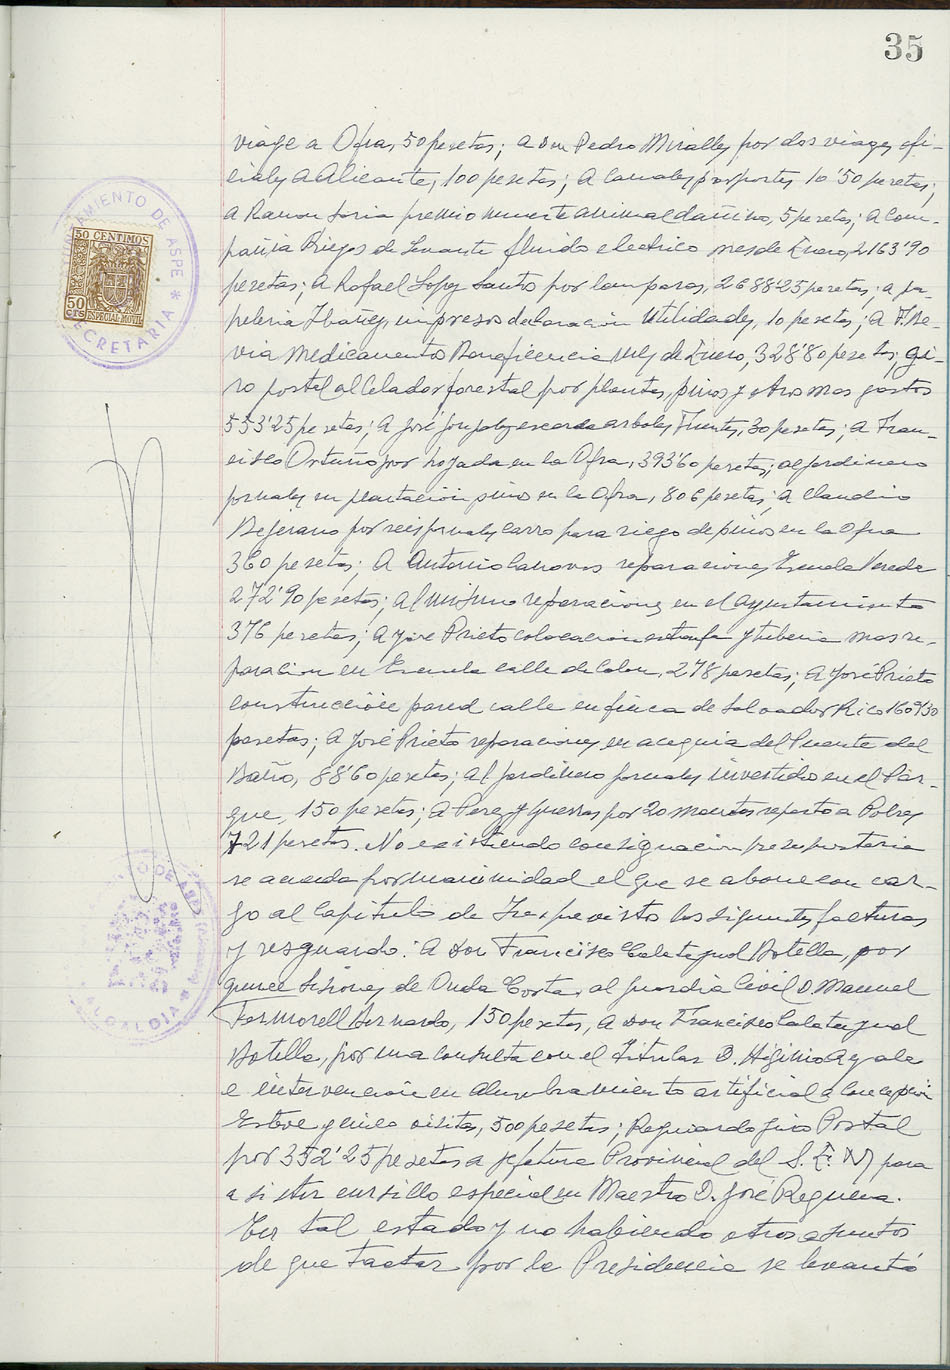 35
viage a Ofra, 50 pesetas; a Don Pedro Miralles por dos viages ofi-
ciales a Alicante, 100 pesetas; a Canales por portes 10'50 pesetas;
a Ramon Soria premio muerte animal dañino, 5 pesetas; a Com-
pañia Riegos de Levante fluido electrico mes de Enero, 2163'90
pesetas; a Rafael Lopez Santo por lamparas, 2688'25 pesetas; a pa-
peleria Ibañez, impresos declaracion Utilidades, 10 pesetas; a
medicamento Beneficencia mes de Enero, 328'80 pesetas; gi-
ro postal al Celador forestal por plantas, pinos y otros mas gastos
553'25 pesetas; a José Gonzalez escarda arboles Fuentes, 30 pesetas; a Fran-
cisco Ortuño por hojada en la Ofra, 393'60 pesetas; al jardinero
jornales en plantación pinos en la Ofra, 806 pesetas; a Claudino
Bejerano por seis jornales carro para riego de pinos en la Ofra
360 pesetas; a Antonio Canovas reparaciones Escuela Vereda
272'90 pesetas; al mismo reparaciones en el ayuntamiento
376 pesetas; a José Prieto colocacion estufa y tuberia mas re-
paracion en Escuela calle de Colon, 278 pesetas; a José Prieto
construcción pared calle en finca de Salvador Rico 1609'30
pesetas; a José Prieto reparaciones en acequia del Puente del
Baño, 88'60 pesetas; al jardinero jornales invertido en el Par-
que, 150 pesetas; a Perez y Guerras por 20 mantas reparto a Pobres
721 pesetas. No existiendo consignacion presupostaria
se acuerda por unanimidad el que se abone con car-
go al Capitulo de Imprevisto las siguientes facturas
y resguardo: a Don Francisco Calatayud Botella, por
quince sesiones de Onda Corta, al guardia Civil D. Manuel
Bernardo, 150 pesetas, a Don Francisco Calatayud
Botella, por una consulta con el Titular D. Higinio Ayala
e intervención en alumbramiento artificial a Concepción
Esteve y cinco visitas, 500 pesetas; Resguardo Giro Postal
por 352'25 pesetas a Jefatura Provincial del S.E.M para
asistir cursillo especial un Maestro D. José Requena.
En tal estado y no habiendo otros asuntos
de que tratar por la Presidencia se levantó
AYUNTAMIENTO DE ASPE * SECRETARIA *
50 CENTIMOS
50 CTS
ESPECIAL MOVIL
ALCALDIA